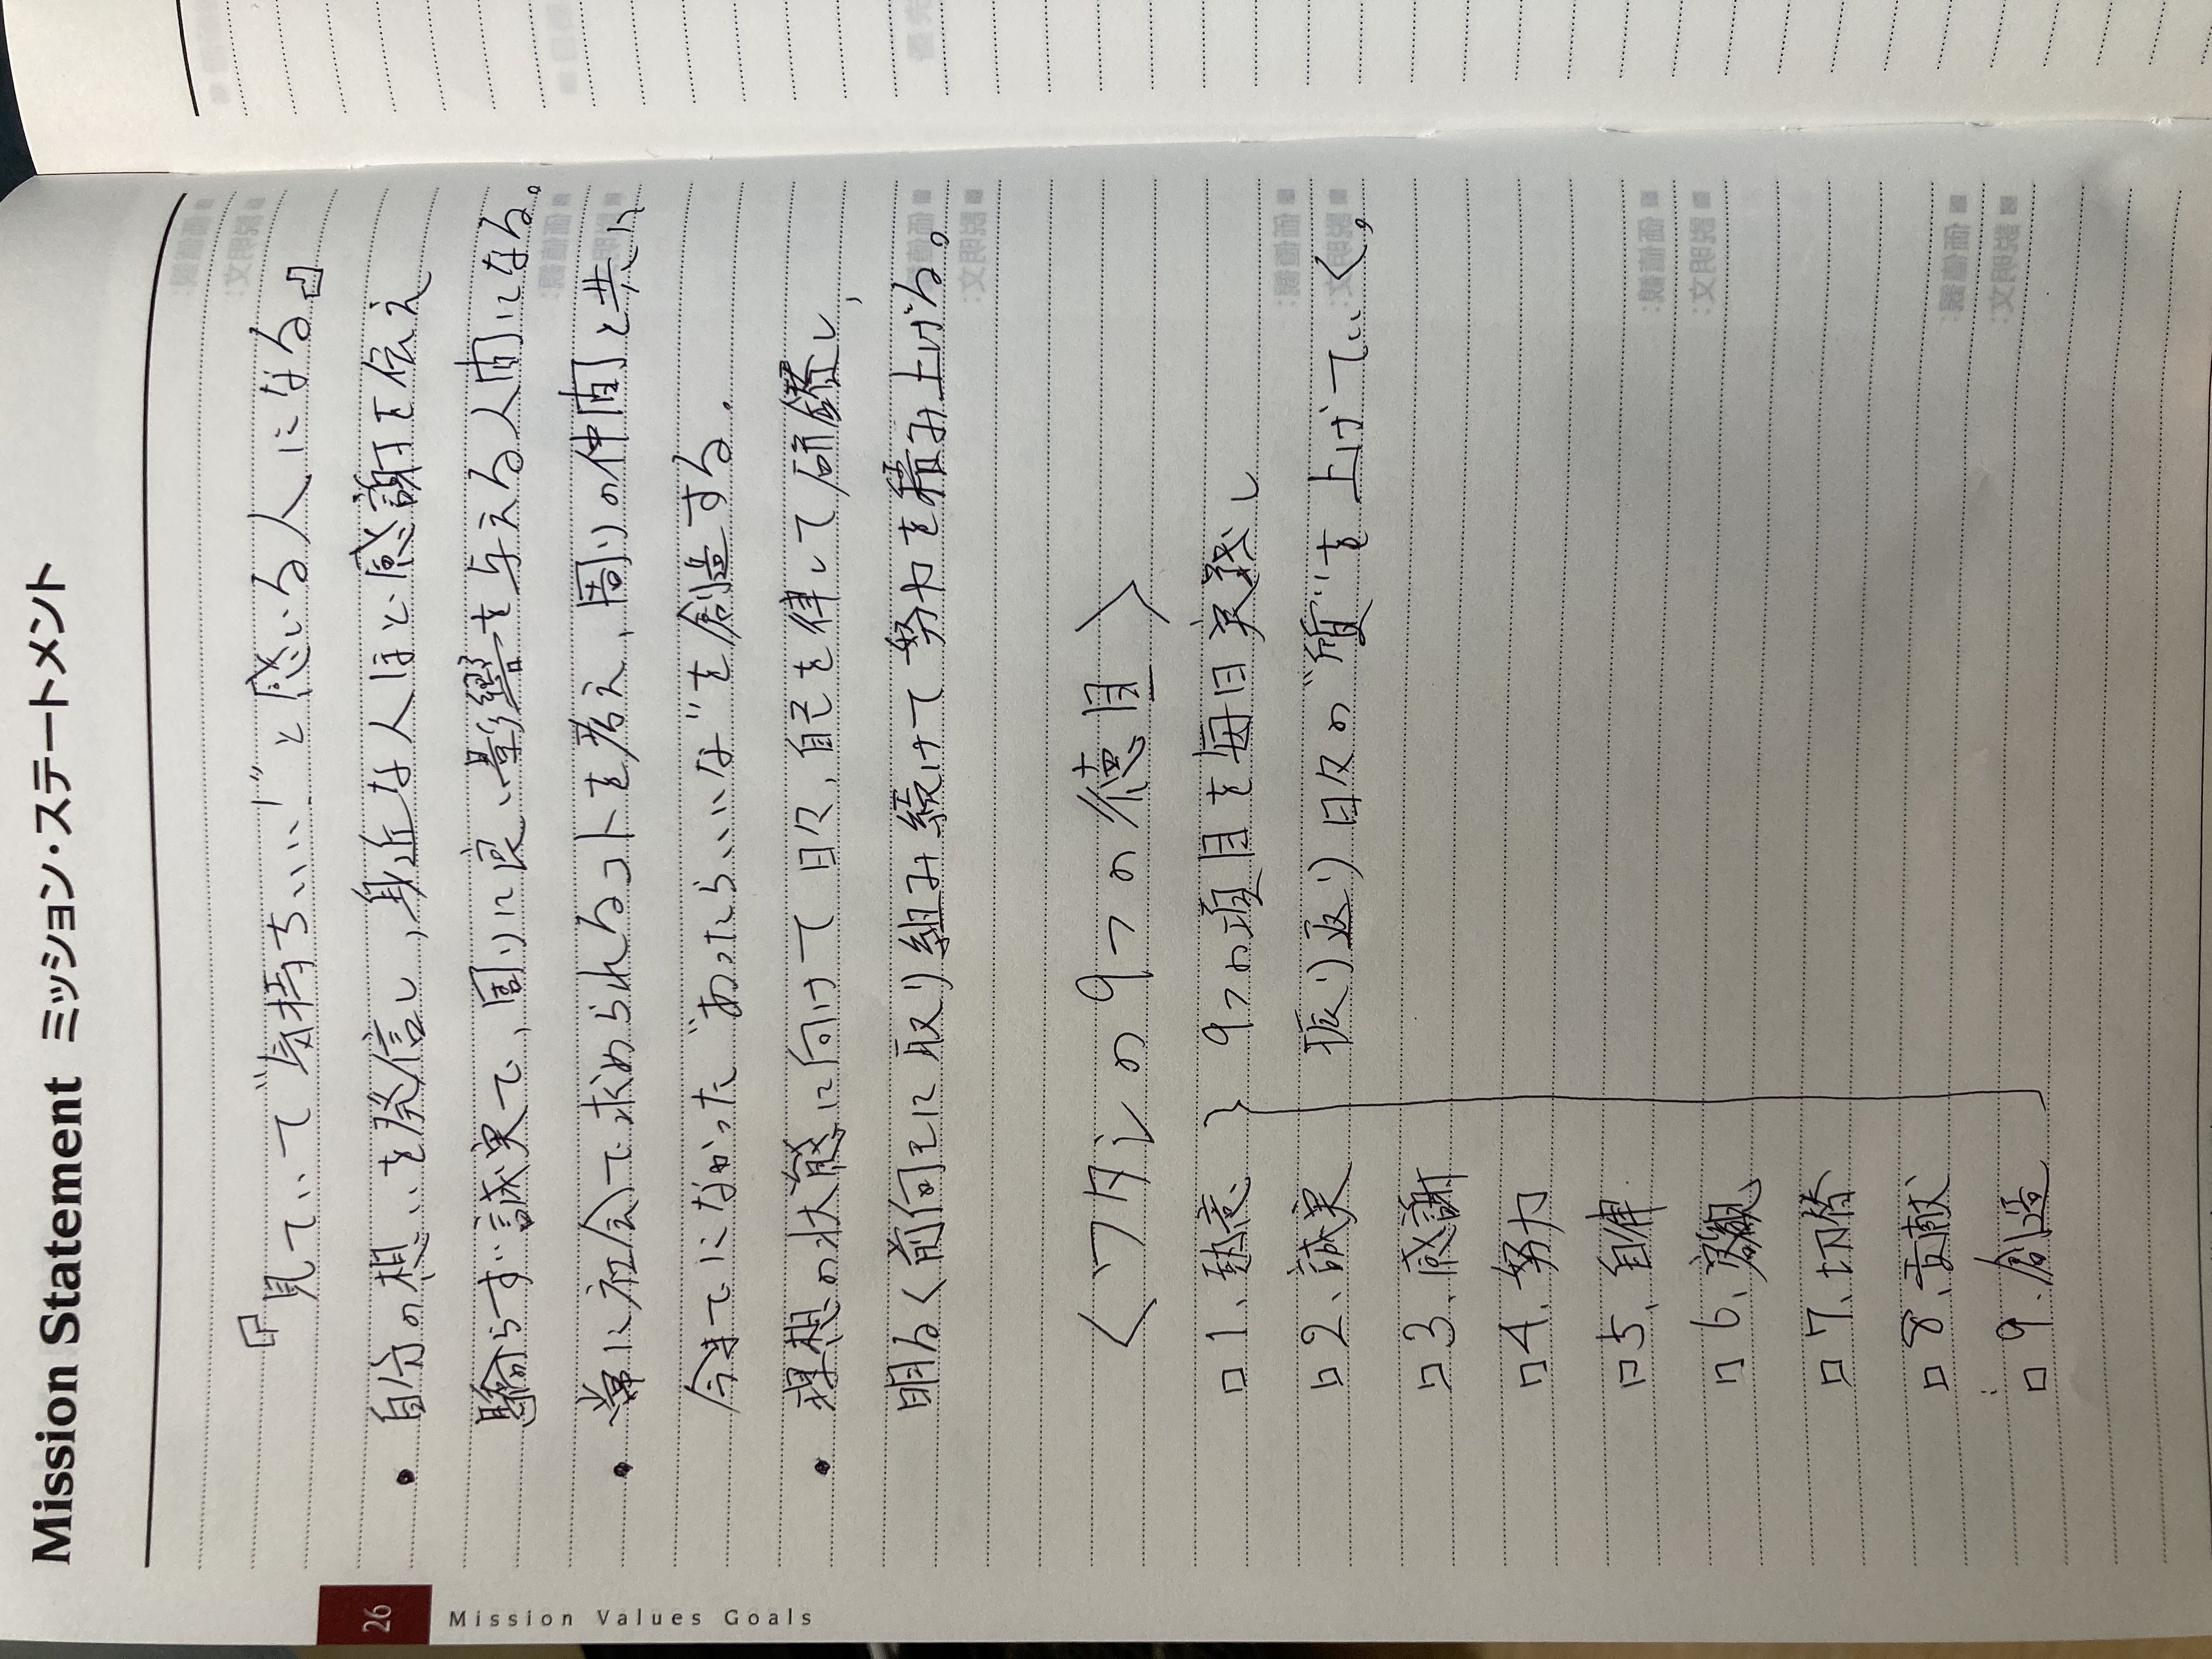 Mission Statement ミッション・ステートメント
『見ていて“気持ちいい!”と感じる人になる』
• 自分の想いを発信し、身近な人ほど感謝を伝え
驕らず誠実で、周りに良い影響を与える人間になる。
• 常に社会で求められるコトを考え、周りの仲間と共に
今までになかった“あったらいいな”を創造する。
• 理想の状態に向けて日々、自己を律して研鑽し、
明るく前向きに取り組み続けて努力を積み上げる。
<ワタシの9つの徳目>
□ 1、熱意 } 9つの項目を毎日実践し
□ 2、誠実 振り返り日々の“質”を上げていく。
□ 3、感謝
□ 4、努力
□ 5、自律
□ 6、客観
□ 7、切替
□ 8、貢献
□ 9、創造
26
Mission Values Goals